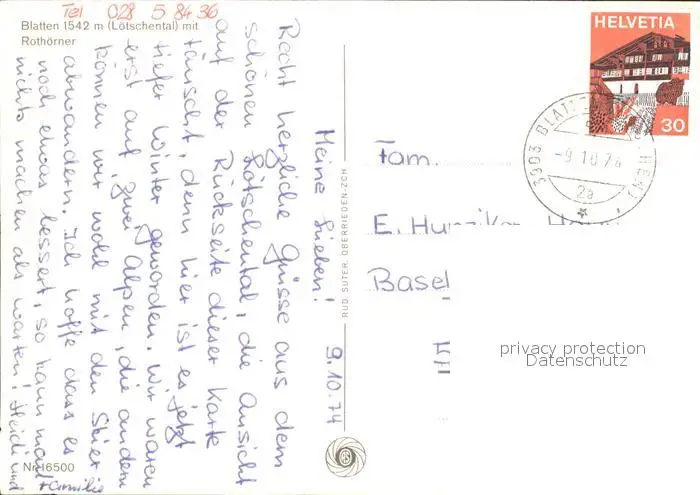 Tel 028 5 84 36
Blatten 1542 m (Lötschental) mit
Rothörner
9.10.74
Meine Lieben!
Recht herzliche Grüsse aus dem
schönen Lötschental, die Ansicht
auf der Rückseite dieser Karte
täuscht, denn hier ist es jetzt
tiefer Winter geworden. Wir waren
erst auf zwei Alpen, die andern
können wir wohl mit den Skier
abwandern. Ich hoffe dass es
noch etwas bessert, so kann man
nichts machen als warten! Heidi und
Familie
Nr. 16500
RUD. SUTER, OBERRIEDEN-ZCH
HELVETIA
30
3903 BLATTEN
-9.10.74
2a
Fam.
E. Hunziker
Basel
privacy protection
Datenschutz